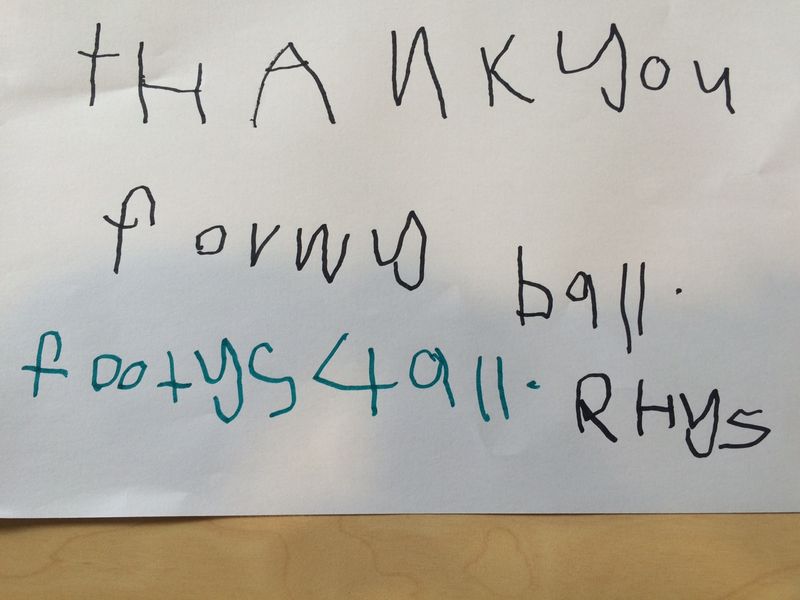 tHANK you
for my ball.
footys 4 all.
RHys